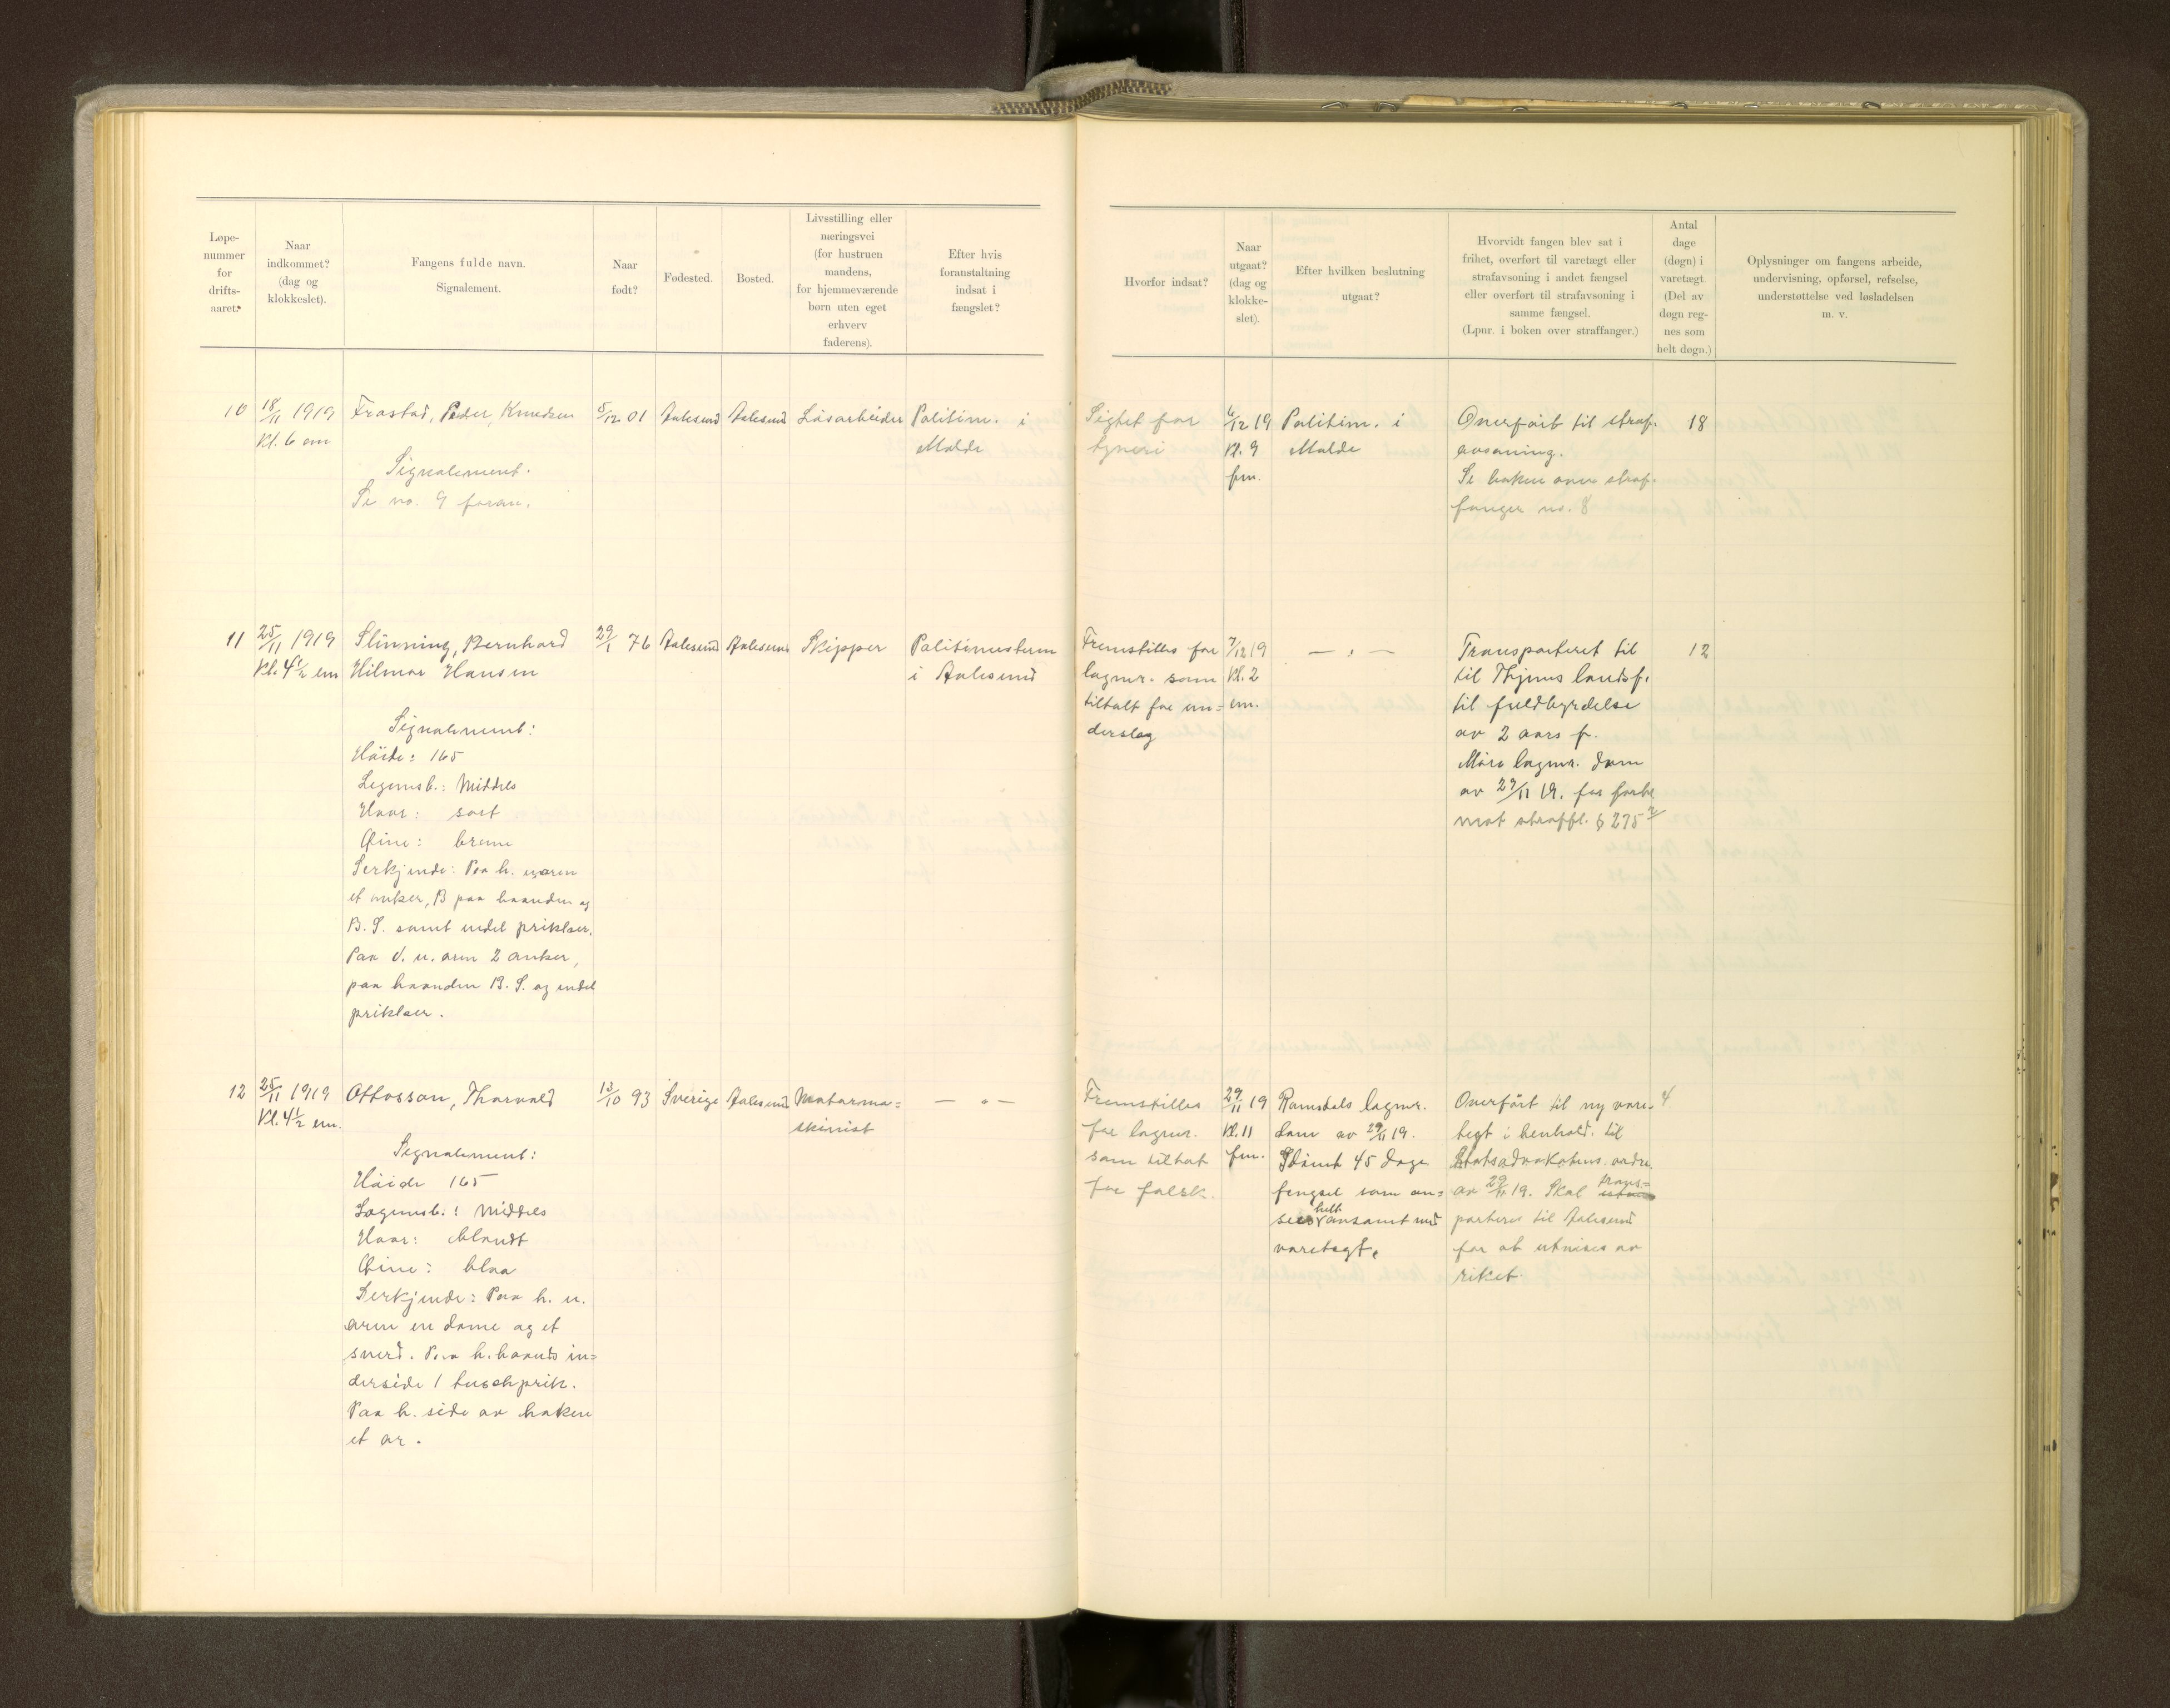 Løpe-
nummer
for
drifts-
aaret.
Naar
indkommet?
(dag og
klokkeslet).
Fangens fulde navn.
Signalement.
Naar
født?
Fødested.
Bosted.
Livsstilling eller
næringsvei
(for hustruen
mandens,
for hjemmeværende
børn uten eget
erhverv
faderens).
Efter hvis
foranstaltning
indsat i
fængslet?
Hvorfor indsat?
Naar
utgaat?
(dag og
klokke-
slet).
Efter hvilken beslutning
utgaat?
Hvorvidt fangen blev sat i
frihet, overført til varetægt eller
strafavsoning i andet fængsel
eller overført til strafavsoning i
samme fængsel.
(Lpnr. i boken over straffanger.)
Antal
dage
(døgn) i
varetægt.
(Del av
døgn reg-
nes som
helt døgn.)
Oplysninger om fangens arbeide,
undervisning, opførsel, refselse,
understøttelse ved løsladelsen
m. v.
10
18/11 1919
Kl. 6 em
Frostad, Peder, Knudsen
Signalement.
Se no. 9 foran.
5/12 01
Aalesund
Aalesund
Løsarbeider
Politim. i
Molde
Sigtet for
tyveri
6/12 19
Kl. 9
fm.
Politim. i
Molde
Overført til straf-
avsoning.
Se boken over straf-
fanger no. 8
18
11
25/11 1919
Kl. 4½ em
Slinning, Bernhard
Hilmar Hansen
Signalement:
Høide: 165
Legemsb.: Middels
Haar: sort
Øine: brune
Serkjende: Paa h. u. arm
et anker, B paa haanden og
B. S. samt endel prikker.
Paa v. u. arm 2 anker,
paa haanden B. S. og endel
prikker.
29/1 76
Aalesund
Aalesund
Skipper
Politimesteren
i Aalesund
Fremstilles for
lagmr. som
tiltalt for un-
derslag
7/12 19
Kl. 2
em.
— „ —
Transporteret til
til Thjems landsf.
til fuldbyrdelse
av 2 aars f.
Møre lagmr. dom
av 27/11 19. for forbr.
mot straffl. § 275 2/
12
12
25/11 1919
Kl. 4½ em.
Ottosson, Thorvald
Signalement:
Høide 165
Legemsb.: Middels
Haar: blondt
Øine: blaa
Serkjende: Paa h. u.
arm en dame og et
sverd. Paa h. haands in-
derside 1 tuschprik.
Paa h. side av haken
et ar.
13/10 93
Sverige
Aalesund
Motorma-
skinist
— „ —
Fremstilles
for lagmr.
som tiltalt
for falsk.
29/11 19
Kl. 11
fm.
Romsdals lagmr.
dom av 29/11 19.
Idømt 45 dage
fengsel som an-
sees helt avsonet med
varetegt.
Overført til ny vare-
tegt i henhold. til
Statsadvokatens ordre
av 29/11 19. Skal trans-
porteres til Aalesund
for at utvises av
riket.
4